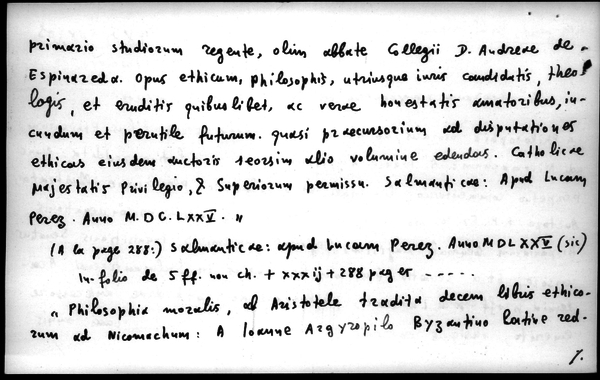 primario studiorum regente, olim abbate Collegii D. Andreae de
Espinareda. Opus ethicum, philosophis, utriusque iuris candidatis, theo-
logis, et eruditis quibuslibet, ac verae honestatis amatoribus, iu-
cundum et perutile futurum. quasi praecursorium ad disputationes
ethicas eiusdem auctoris seorsim alio volumine edendas. Catholicae
Majestatis Privilegio, & Superiorum permissu. Salmanticae: Apud Lucam
Perez. Anno M.DC.LXXV. "
(A la page 288:) Salmanticae: apud Lucam Perez. Anno MDLXXV (sic)
In-folio de 5 ff. non ch. + xxxij + 288 pages - - - - -
" Philosophia moralis, ab Aristotele tradita decem libris ethico-
rum ad Nicomachum: A Ioanne Argyropilo Byzantino latine red-
1.